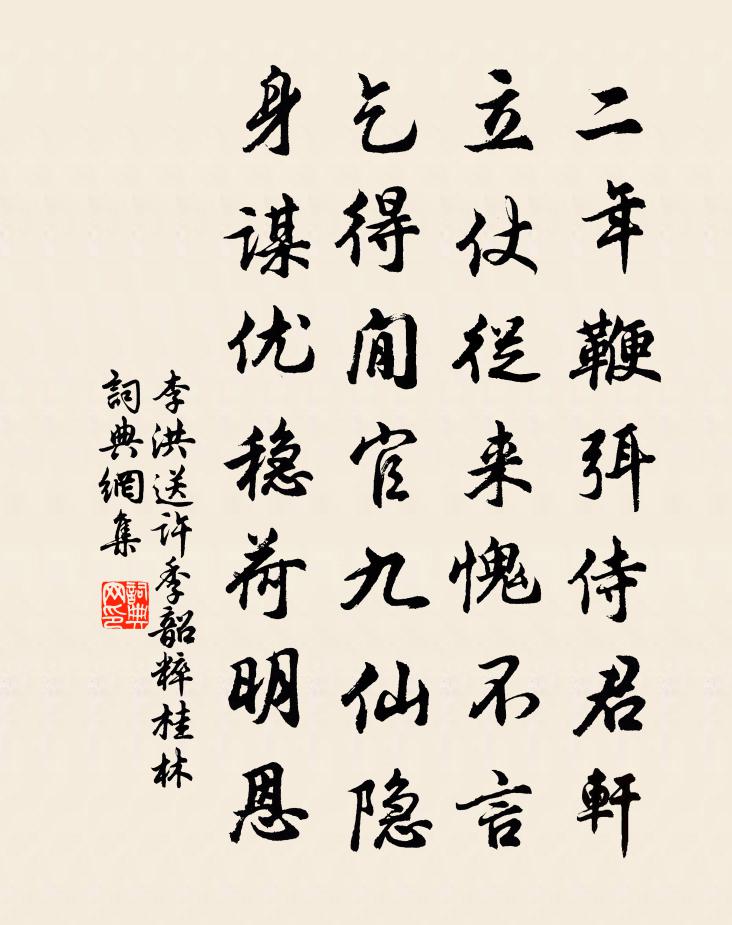 二年鞭弭侍君軒
立仗從来愧不言
乞得閒官九仙隐
身谋优稳荷明恩
李洪送许季韶粹桂林
詞典網集
詞典网印